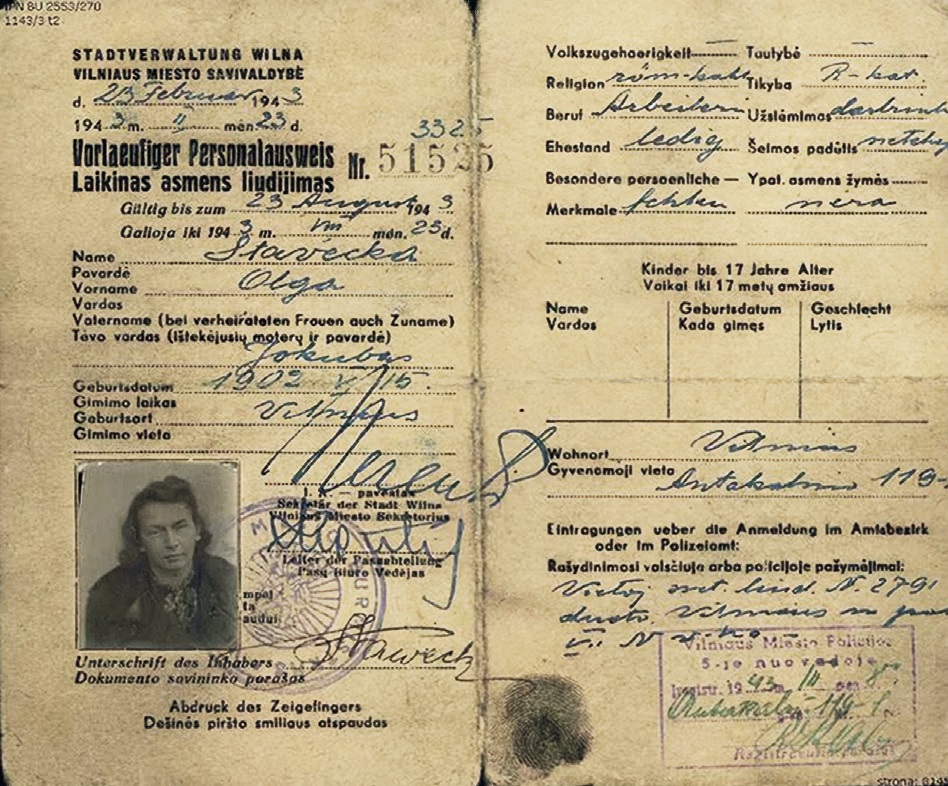 IPN BU 2553/270
1143/3 t2
STADTVERWALTUNG WILNA
VILNIAUS MIESTO SAVIVALDYBĖ
d. 23 Februar 194 3
194 3 m. II mėn. 23 d.
3325
Vorlaeufiger Personalausweis Nr. 51525
Laikinas asmens liudijimas
Gültig bis zum 23 August 194 3
Galioja iki 194 3 m. VIII mėn. 23 d.
Name Stavecka
Pavardė
Vorname Olga
Vardas
Vatername (bei verheirateten Frauen auch Zuname)
Tėvo vardas (ištekėjusių moterų ir pavardė)
Jokubas
Geburtsdatum 1902 V 15.
Gimimo laikas
Geburtsort Vilnius
Gimimo vieta
I. A. — pavestas
Sekretär der Stadt Wilna
Vilniaus Miesto Sekretorius
Leiter der Passabteilung
Pasų Biuro Vedėjas
Unterschrift des Inhabers
Dokumento savininko parašas
Abdruck des Zeigefingers
Dešinės piršto smiliaus atspaudas
Volkszugehoerigkeit — Tautybė —
Religion röm-kath Tikyba R-kat.
Beruf Arbeiterin Užsiėmimas
Ehestand ledig Šeimos padėtis
Besondere persoenliche — Ypat. asmens žymės
Merkmale fehlen nėra
Kinder bis 17 Jahre Alter
Vaikai iki 17 metų amžiaus
Name Geburtsdatum Geschlecht
Vardas Kada gimęs Lytis
Wohnort Vilnius
Gyvenamoji vieta Antakalnio 119-
Eintragungen ueber die Anmeldung im Amtsbezirk
oder im Polizeiamt:
Įrašydinimosi valsčiuje arba policijoje pažymėjimai:
Vietoj liud. N. 2791
duoto Vilniaus m
Vilniaus Miesto Policijos
5-je nuovadoje
Įregistr. 1943 m. III mėn 8
119-1
strona: